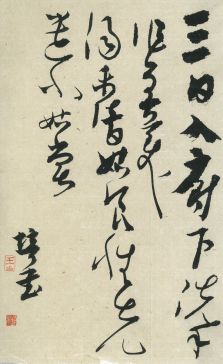 三日入廚下洗手
作羹
湯未諳姑食性先
遣小姑嘗